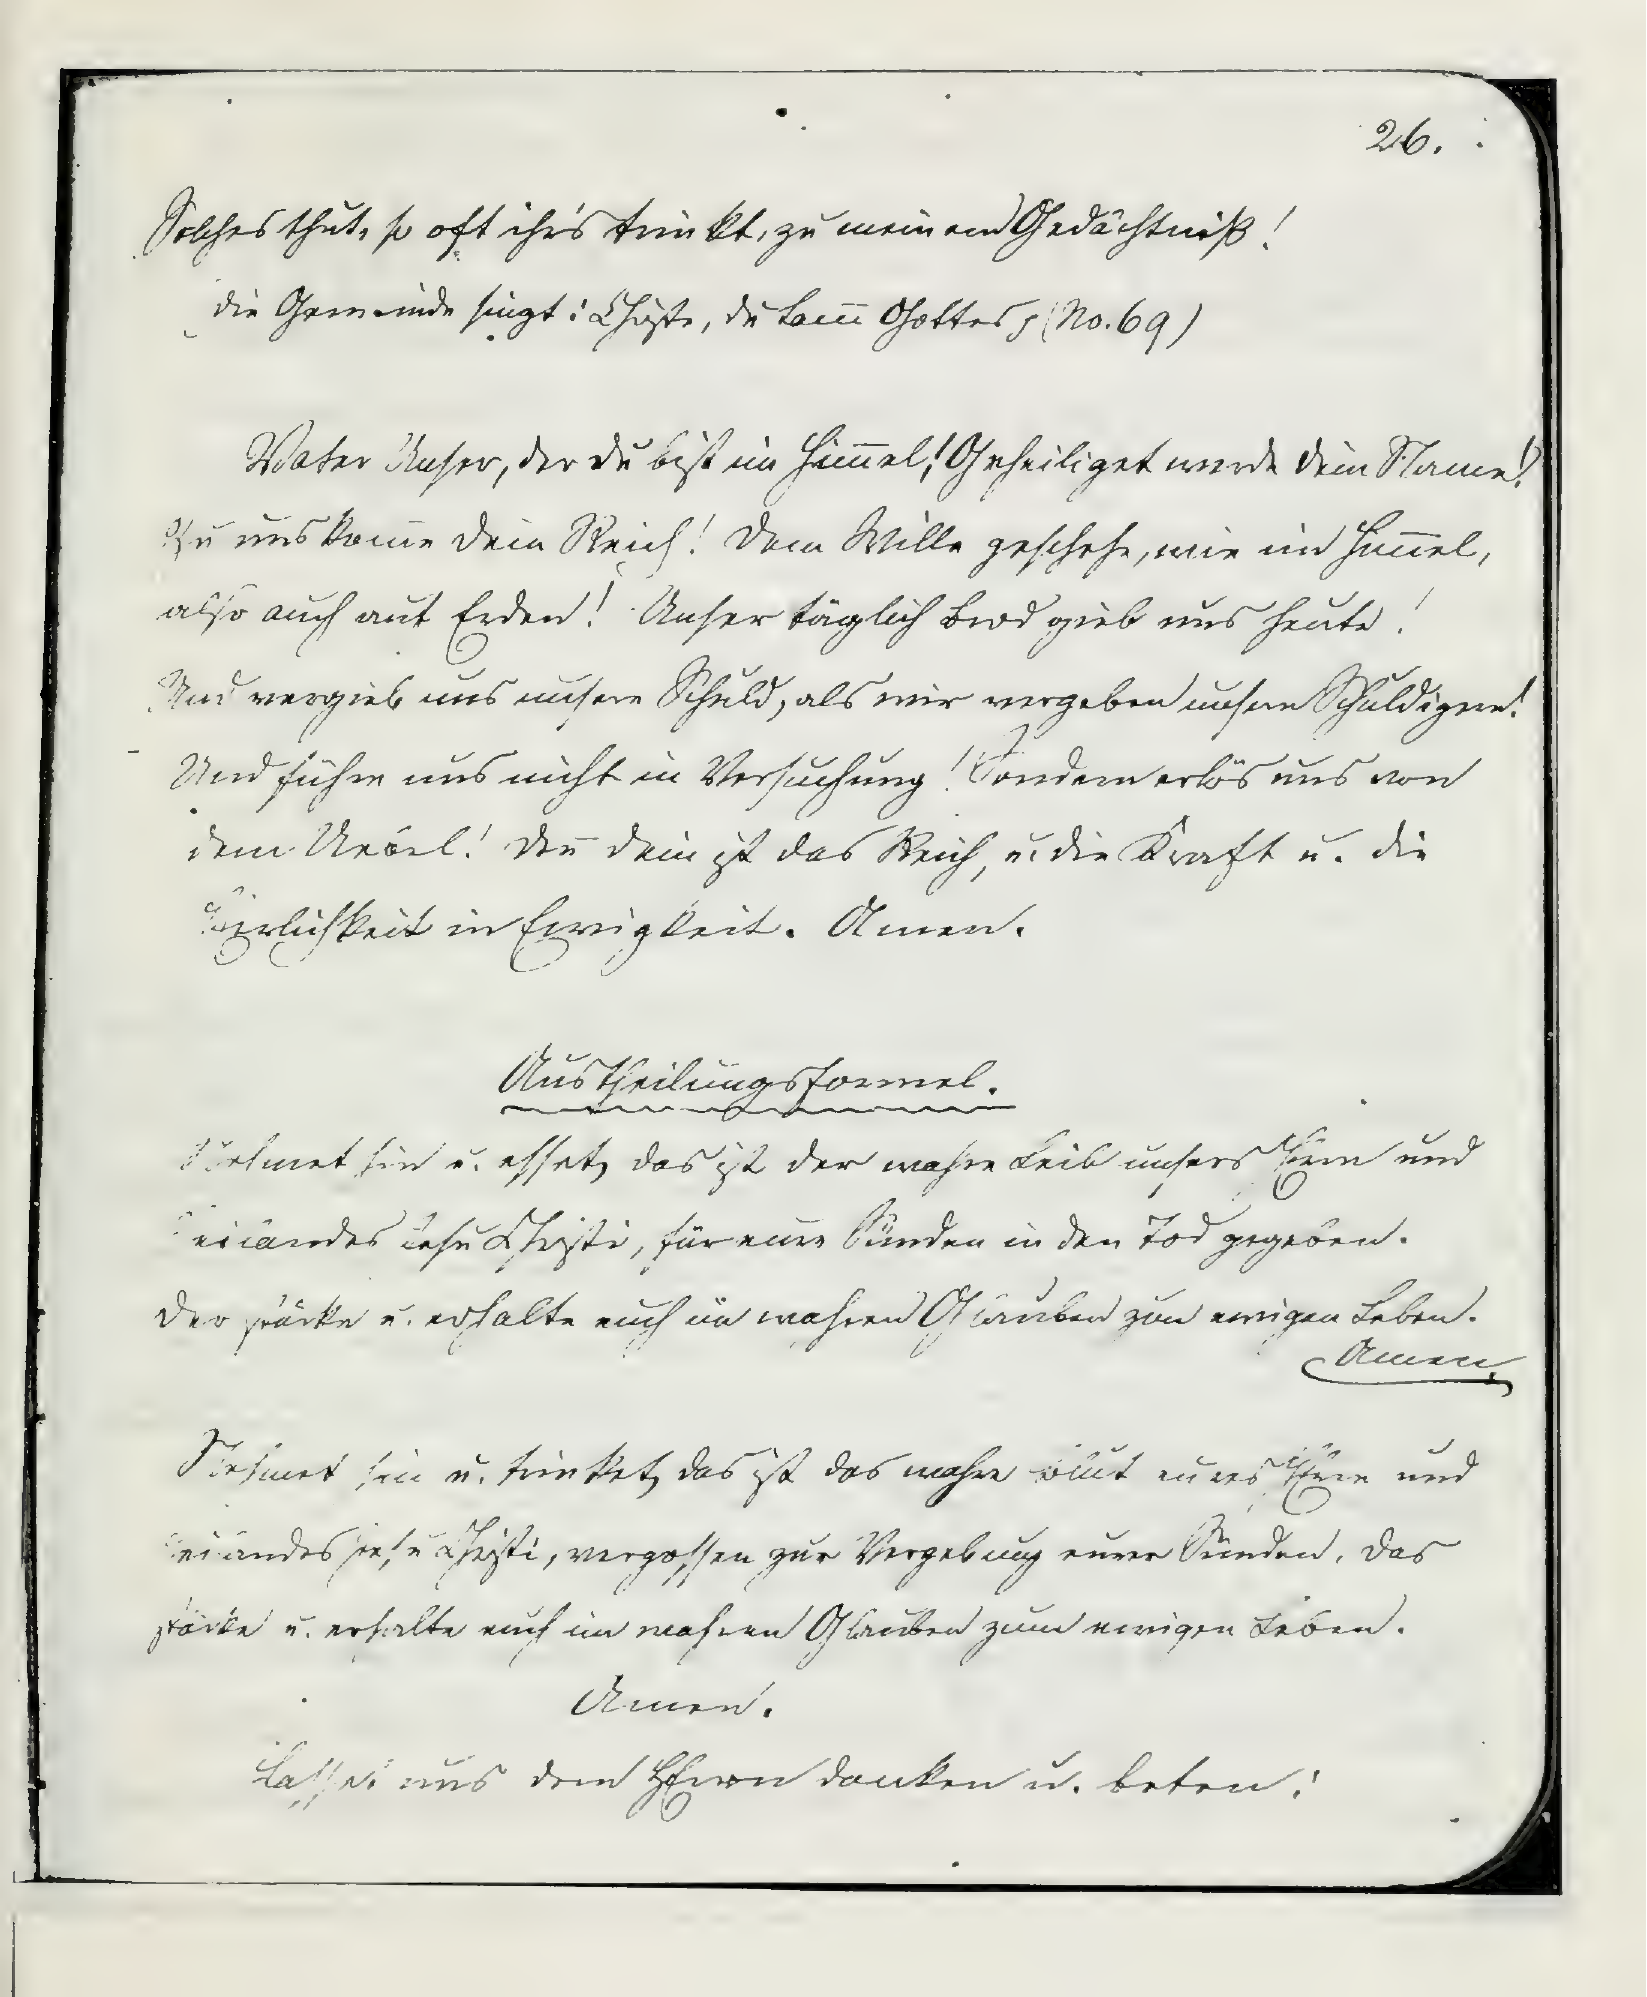 26.
Solches thut, so oft ihr's trinkt, zu meinem Gedächtniß!
Die Gemeinde singt: Christe, du Lam̅ Gottes p (No. 69)
Vater Unser, der du bist im Him̅el! Geheiliget werde dein Name!
Zu uns kom̅e dein Reich! Dein Wille geschehe, wie im Him̅el,
also auch auf Erden! Unser täglich Brod gieb uns heute!
Und vergieb uns unsere Schuld, als wir vergeben unsern Schuldigern!
Und führe uns nicht in Versuchung! Sondern erlös uns von
dem Uebel! Den̅ dein ist das Reich, u. die Kraft u. die
Herrlichkeit in Ewigkeit. Amen.
Austheilungsformel.
Nehmet hin u. esset, das ist der wahre Leib unsers Herrn und
Heilandes Jesu Christi, für eure Sünden in den Tod gegeben.
Der stärke u. erhalte euch im wahren Glauben zum ewigen Leben.
Amen.
Nehmet hin u. trinket, das ist das wahre Blut eures Herrn und
Heilandes Jesu Christi, vergossen zur Vergebung eurer Sünden. Das
stärke u. erhalte euch im wahren Glauben zum ewigen Leben.
Amen.
Lasset uns dem HErrn danken u. beten: